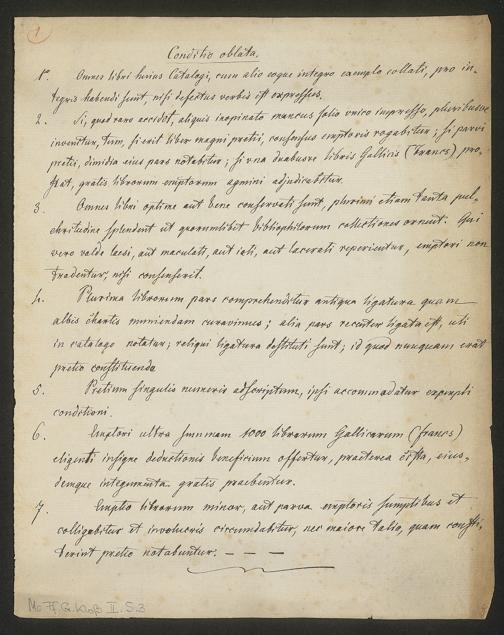 1
Conditio oblata.
1. Omnes libri huius Catalogi, cum alio eoque integro exemplo collati, pro in-
tegris habendi sunt, nisi defectus verbis est expressus.
2. Si, quod raro accidit, aliquis inopinato mancus folio unico impresso, pluribusve
invenitur, tum, si erit liber magni pretii, consensus emptoris rogabitur; si parvi
pretii, dimidia eius pars notabitur; si una duabusve libris Gallicis (francs) pro-
stat, gratis librorum emptorum agmini adjudicabitur.
3. Omnes libri optime aut bene conservati sunt, plurimi etiam tanta pul-
chritudine splendent ut quorumlibet bibliophilorum collectiones ornent. Qui
vero valde laesi, aut maculati, aut icti, aut lacerati reperientur, emptori non
tradentur, nisi consenserit.
4. Plurima librorum pars comprehenditur antiqua ligatura quam
albis chartis muniendam curavimus; alia pars recenter ligata est, uti
in catalogo notatur; reliqui ligatura destituti sunt; id quod nunquam erat
pretio constituendo
5. Pretium singulis numeris adscriptum, ipsi accommodatur exempli
conditioni.
6. Emptori ultra summam 1000 librarum Gallicarum (francs)
eligenti insigne deductionis beneficium offertur, praeterea cista, eius-
demque integumenta gratis praebentur.
7. Emptio librorum minor, aut parva emptoris sumptibus et
colligabitur et involucris circumdabitur, nec maiore talia, quam consti-
terint pretio notabuntur. — — —
Ms Ff. G. Kloß II. S. 3